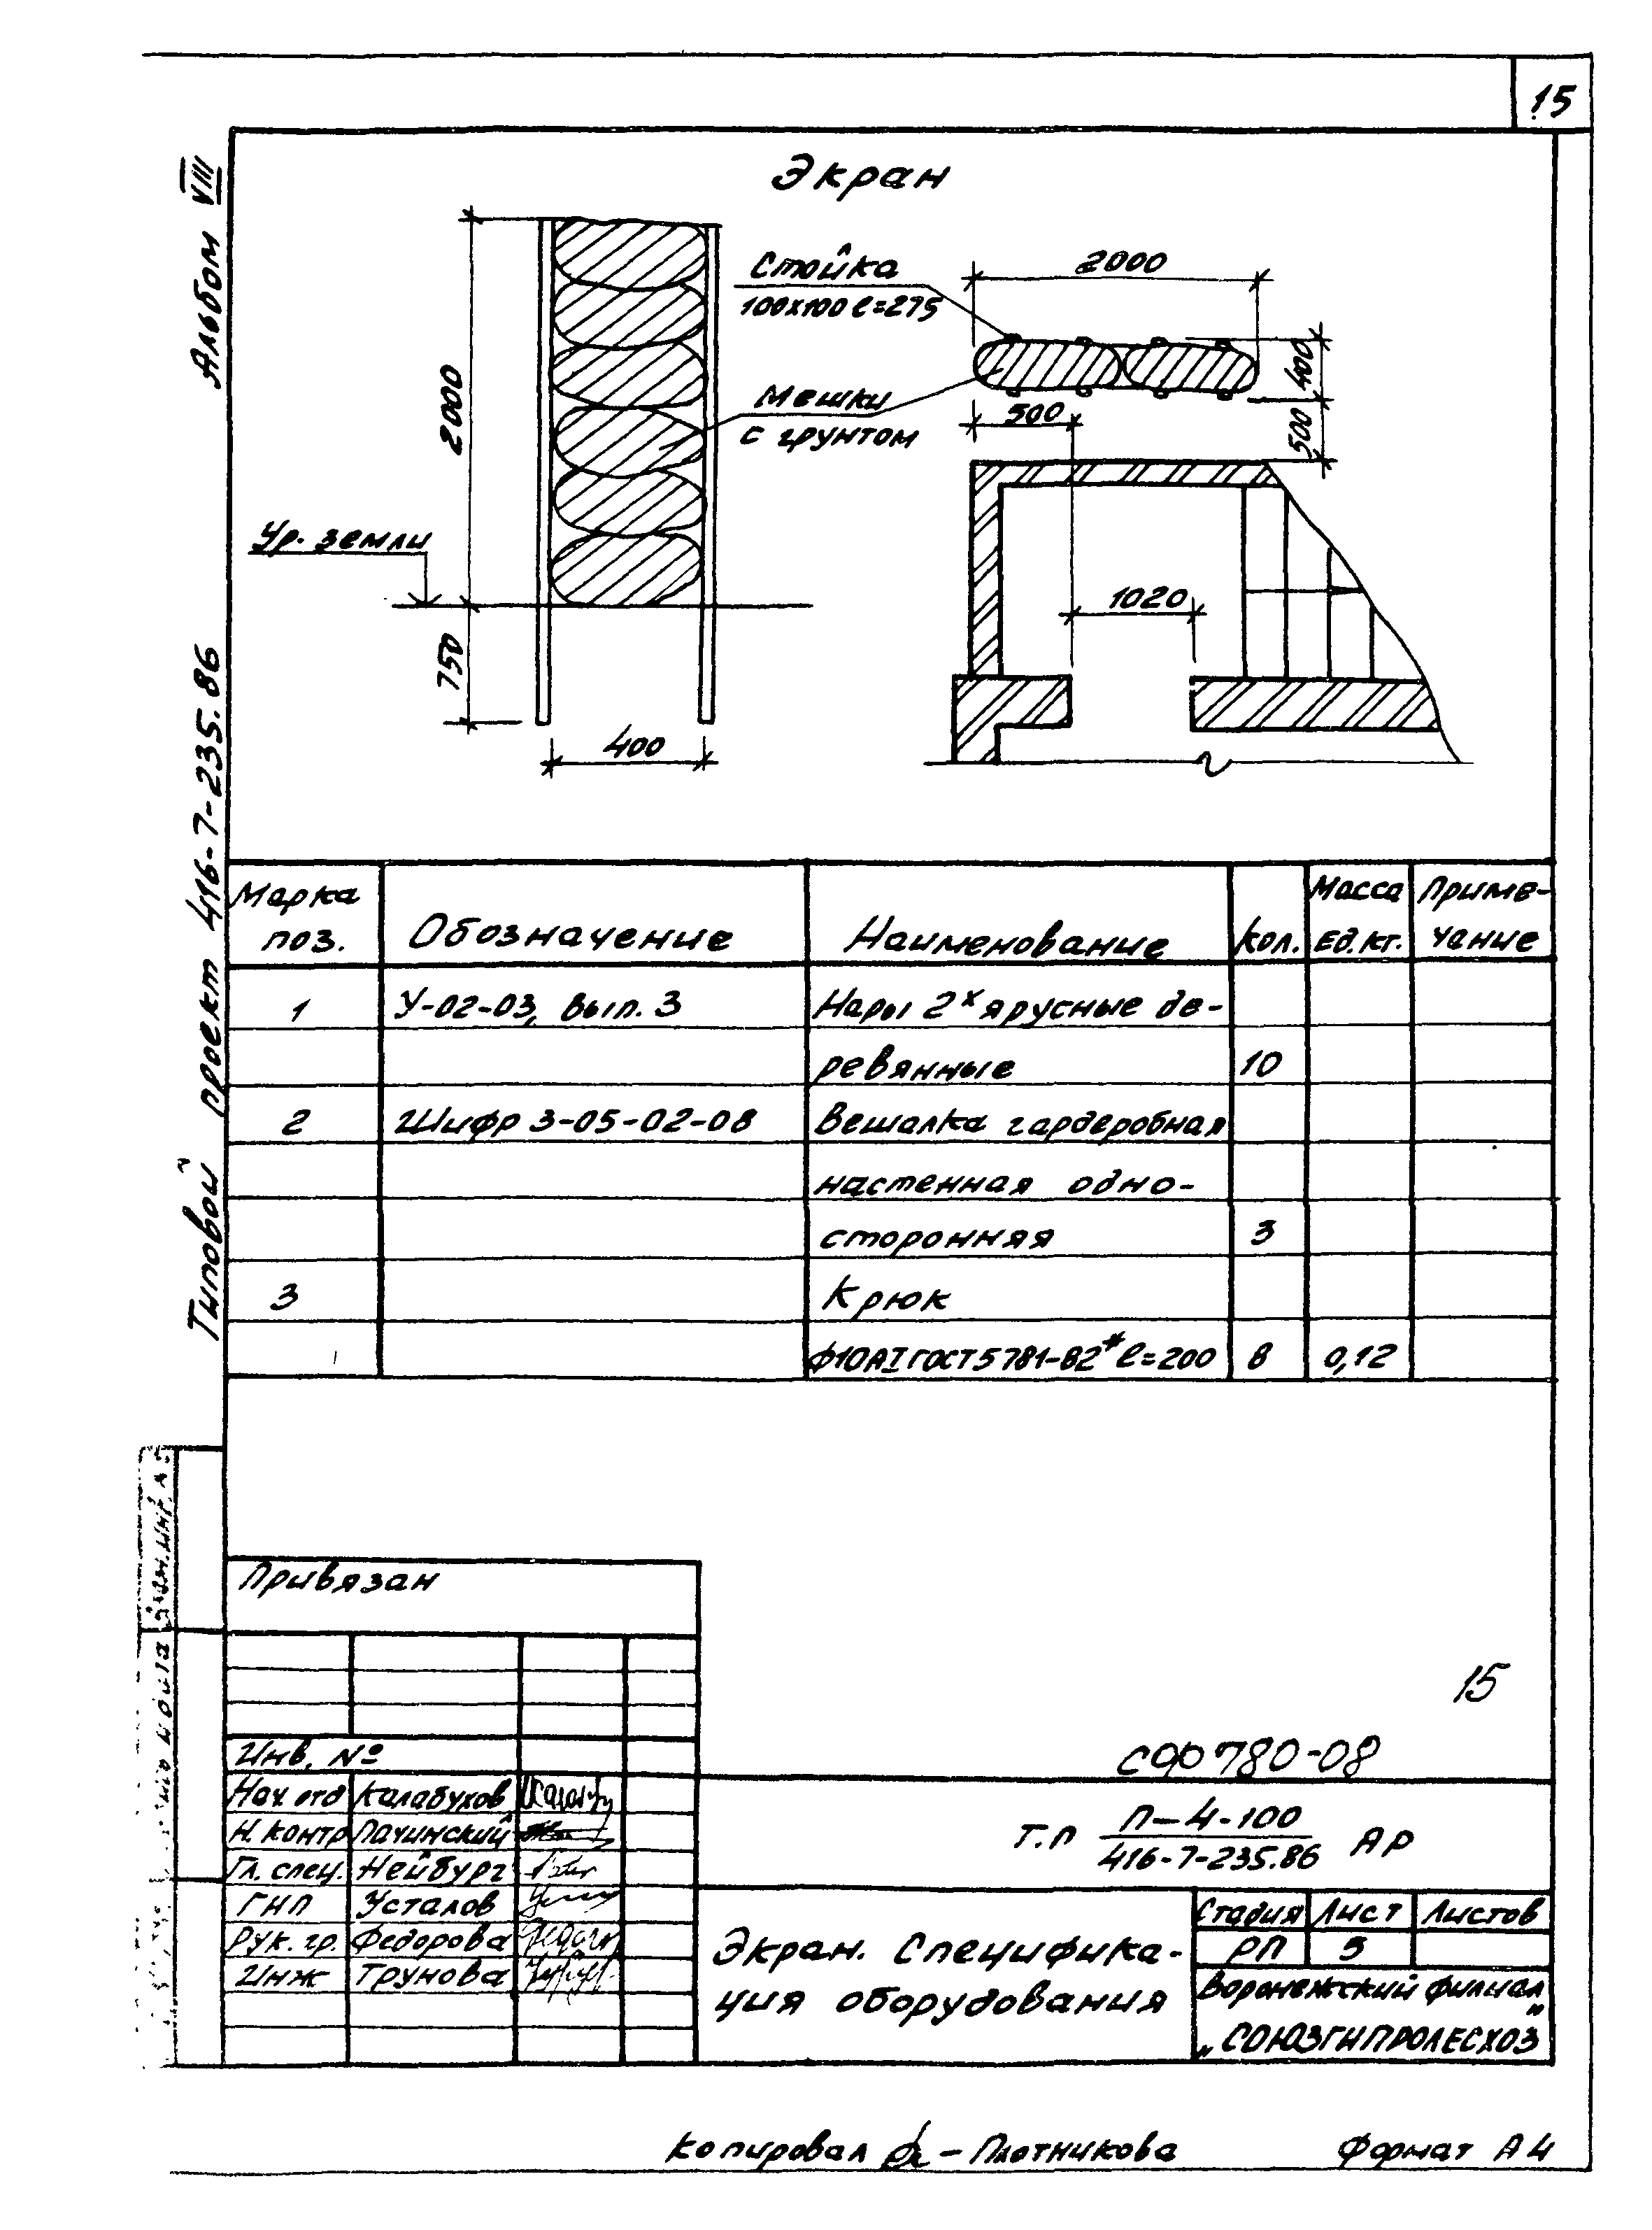 15
Альбом VIII
Типовой проект 416-7-235.86
Экран
2000
750
400
Ур. земли
Стойка
100х100 ℓ=275
Мешки
с грунтом
2000
400
500
500
1020
Марка поз. Обозначение Наименование Кол. Масса Ед.кг. Приме-чание
1 У-02-03, вып. 3 Нары 2х ярусные де-
ревянные 10
2 Шифр 3-05-02-08 Вешалка гардеробная
настенная одно-
сторонняя 3
3 Крюк
ф10АI ГОСТ 5781-82* ℓ=200 8 0,12
Привязан
Инв. №
Нач. отд Калабухов
Н. контр Пачинский
Гл. спец. Нейбург
ГИП Усталов
Рук. гр. Федорова
Инж Трунова
15
СФ 780-08
Т.п П-4-100
416-7-235.86 АР
Экран. Специфика-
ция оборудования
Стадия Лист Листов
РП 5
Воронежский филиал
„СОЮЗГИПРОЛЕСХОЗ"
Копировал - Плотникова Формат А4